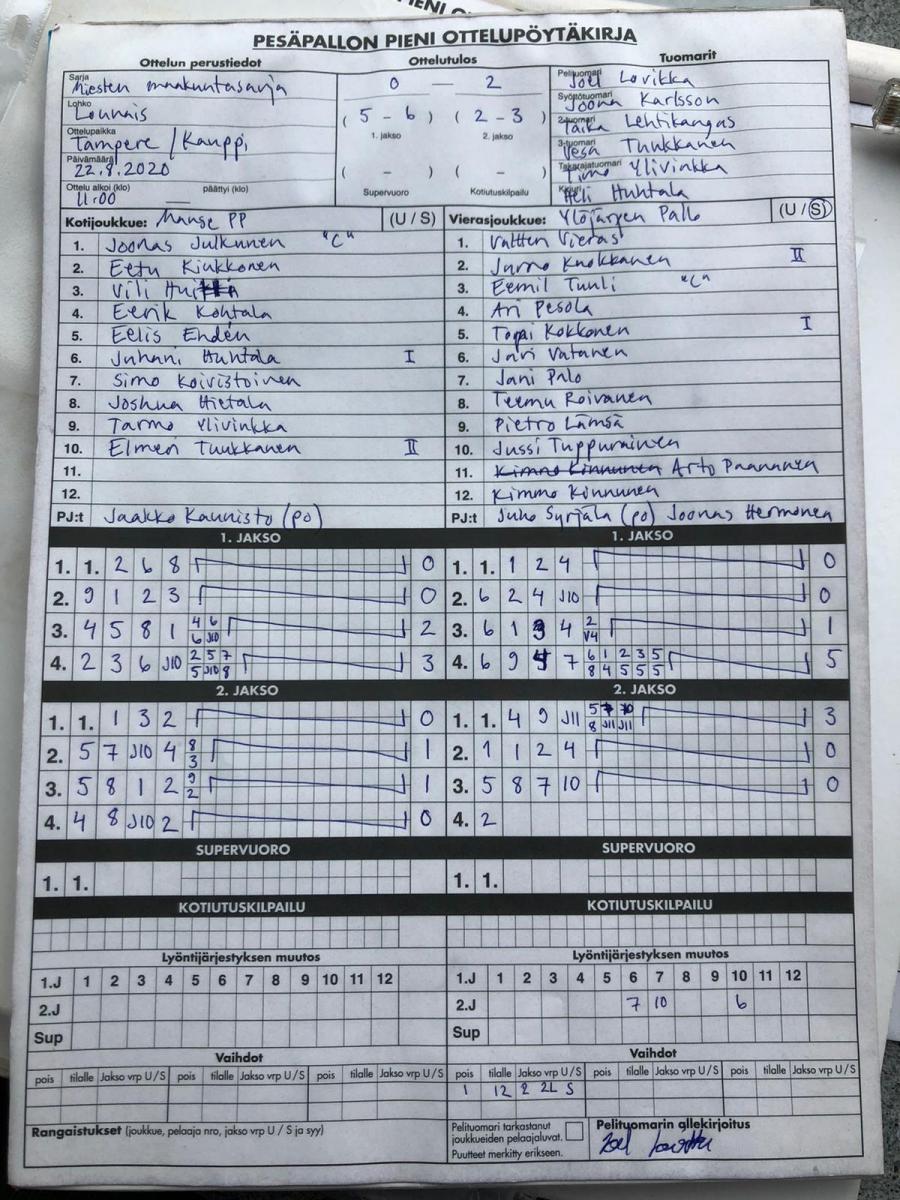 PESÄPALLON PIENI OTTELUPÖYTÄKIRJA
Ottelun perustiedot
Sarja Miesten maakuntasarja
Lohko Lounais
Ottelupaikka Tampere / Kauppi
Päivämäärä 22.8.2020
Ottelu alkoi (klo) 11:00 päättyi (klo) —
Ottelutulos
0 — 2
( 5 - 6 ) ( 2 - 3 )
1. jakso 2. jakso
( - ) ( - )
Supervuoro Kotiutuskilpailu
Tuomarit
Pelituomari Joel Lovikka
Syöttötuomari Joona Karlsson
2-tuomari Taika Lehtikangas
3-tuomari Vesa Tuukkanen
Takarajatuomari Timo Ylivinkka
Kirjuri Heli Huhtala
Kotijoukkue: Manse PP (U / S)
1. Joonas Julkunen "C"
2. Eetu Kiukkonen
3. Vili
4. Eerik Kohtala
5. Eelis Ehdén
6. Juhani Huhtala I
7. Simo Koivistoinen
8. Joshua Hietala
9. Tarmo Ylivinkka
10. Elmeri Tuukkanen II
11.
12.
PJ:t Jaakko Kaunisto (po)
Vierasjoukkue: Ylöjärven Pallo (U / S)
1. Valtteri Vieras
2. Jarmo Knokkanen II
3. Eemil Tuuli "C"
4. Ari Pesola
5. Topi Kokkonen I
6. Jari Vatanen
7. Jani Palo
8. Teemu Roivanen
9. Pietro Lämsä
10. Jussi Tuppurainen
11. Kimmo Kinnunen Arto Paananen
12. Kimmo Kinnunen
PJ:t Juho Syrjälä (po) Joonas Hermonen
1. JAKSO
1. 1. 2 6 8 0
2. 9 1 2 3 0
3. 4 5 8 1 4 6 2
6 J10
4. 2 3 6 J10 2 5 7 3
5 J10 8
1. JAKSO
1. 1. 1 2 4 0
2. 6 2 4 J10 0
3. 6 1 3 4 2 1
V4
4. 6 9 7 6 1 2 3 5 5
8 4 5 5 5
2. JAKSO
1. 1. 1 3 2 0
2. 5 7 J10 4 8 1
3
3. 5 8 1 2 9 1
2
4. 4 8 J10 2 0
2. JAKSO
1. 1. 4 9 J11 5 7 10 3
8 J11 J11
2. 1 1 2 4 0
3. 5 8 7 10 0
4. 2
SUPERVUORO
1. 1.
SUPERVUORO
1. 1.
KOTIUTUSKILPAILU
KOTIUTUSKILPAILU
Lyöntijärjestyksen muutos
1.J 1 2 3 4 5 6 7 8 9 10 11 12
2.J
Sup
Lyöntijärjestyksen muutos
1.J 1 2 3 4 5 6 7 8 9 10 11 12
2.J 7 10 6
Sup
Vaihdot
pois tilalle Jakso vrp U / S pois tilalle Jakso vrp U / S pois tilalle Jakso vrp U / S
Vaihdot
pois tilalle Jakso vrp U / S pois tilalle Jakso vrp U / S pois tilalle Jakso vrp U / S
1 12 2 2L S
Rangaistukset (joukkue, pelaaja nro, jakso vrp U / S ja syy)
Pelituomari tarkastanut
joukkueiden pelaajaluvat.
Puutteet merkitty erikseen.
Pelituomarin allekirjoitus